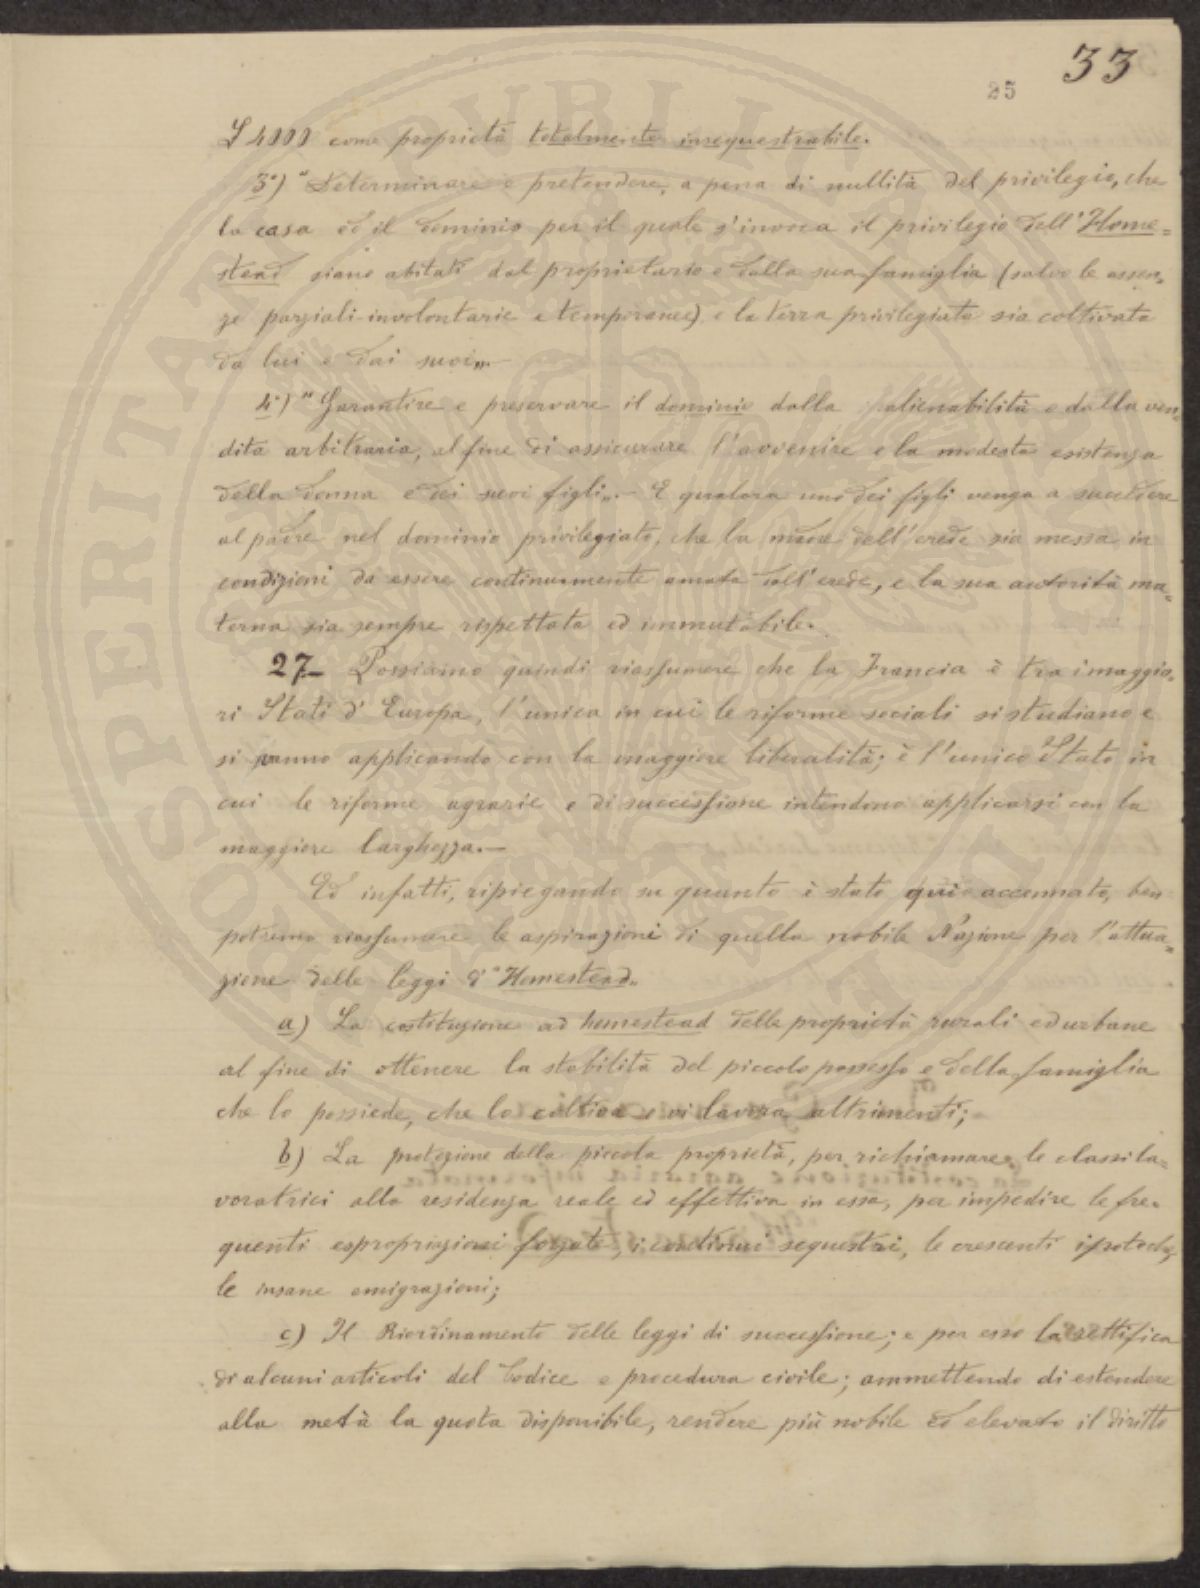 33
25
£ 4000 come proprietà totalmente insequestrabile.
3°) "Determinare e pretendere, a pena di nullità del privilegio, che
la casa ed il dominio per il quale s'invoca il privilegio dell'Home=
stead siano abitati dal proprietario e dalla sua famiglia (salvo le assen=
ze parziali involontarie e temporanee) e la terra privilegiata sia coltivata
da lui e dai suoi„—
4°) "Garantire e preservare il dominio dalla alienabilità e dalla ven=
dita arbitraria, al fine di assicurare l'avvenire e la modesta esistenza
della donna e dei suoi figli„.— E qualora uno dei figli venga a succedere
al padre nel dominio privilegiato, che la madre dell'erede sia messa in
condizioni da essere continuamente amata dall'erede, e la sua autorità ma=
terna sia sempre rispettata ed immutabile.
27— Possiamo quindi riassumere che la Francia è tra i maggio=
ri Stati d'Europa, l'unica in cui le riforme sociali si studiano e
si vanno applicando con la maggiore liberalità; è l'unico Stato in
cui le riforme agrarie e di successione intendono applicarsi con la
maggiore larghezza.—
Ed infatti, ripiegando su quanto è stato qui accennato, ben
potremo riassumere le aspirazioni di quella nobile Nazione per l'attua=
zione delle leggi d'"Homestead„
a) La costituzione ad homestead delle proprietà rurali ed urbane
al fine di ottenere la stabilità del piccolo possesso e della famiglia
che lo possiede, che lo coltiva e vi lavora altrimenti;
b) La protezione della piccola proprietà, per richiamare le classi la=
voratrici alla residenza reale ed effettiva in essa, per impedire le fre=
quenti espropriazioni forzate, i continui sequestri, le crescenti ipoteche,
le insane emigrazioni;
c) Il Riordinamento delle leggi di successione; e per esso la rettifica
di alcuni articoli del Codice e procedura civile; ammettendo di estendere
alla metà la quota disponibile, rendere più nobile ed elevato il diritto
SOSPERITATI PVBLICAE AVGENDAE